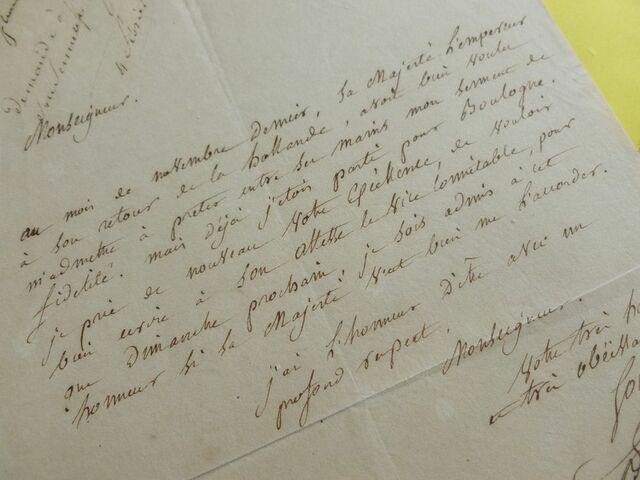 demandé à
Monseigneur.
au mois de novembre dernier, Sa Majesté l'empereur
à son retour de la hollande, avoit bien voulu
m'admettre à preter entre ses mains mon serment de
fidelité. mais déjà j'etois parti pour Boulogne.
je prie de nouveau Votre Excellence, de vouloir
bien ecrire à Son Altesse le Vice Connétable, pour
que Dimanche prochain, je sois admis à cet
honneur si Sa Majesté veut bien me l'accorder.
j'ai l'honneur d'être avec un
profond respect.
Monseigneur.
Votre très
et très obéissa